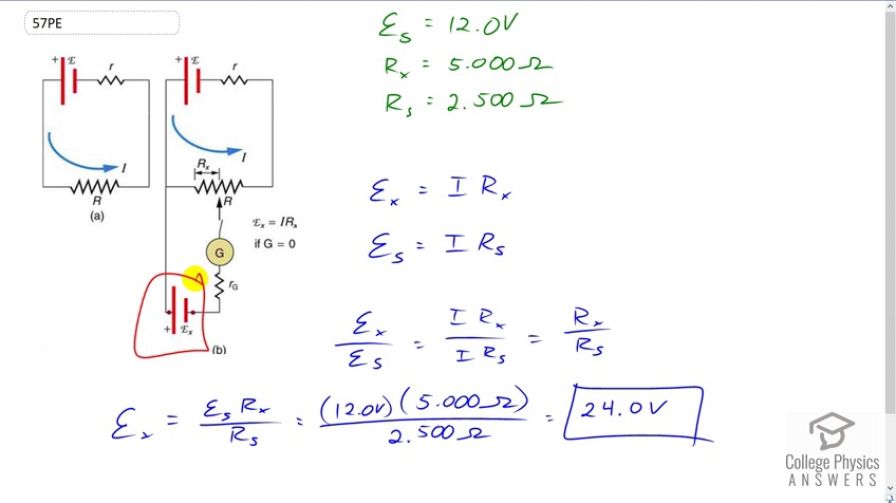 57PE
ℰₛ = 12.0V
Rₓ = 5.000 Ω
Rₛ = 2.500 Ω
+ ℰ r
I
R
(a)
+ ℰ r
I
Rₓ
R
ℰₓ = IRₓ
if G = 0
G
r_G
+ ℰₓ
(b)
ℰₓ = I Rₓ
ℰₛ = I Rₛ
ℰₓ/ℰₛ = I Rₓ/I Rₛ = Rₓ/Rₛ
ℰₓ = ℰₛ Rₓ/Rₛ = (12.0V)(5.000Ω)/2.500Ω = 24.0V
College Physics
ANSWERS